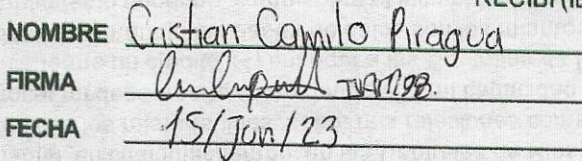 NOMBRE Cristian Camilo Piragua
FIRMA
FECHA 15/Jun/23